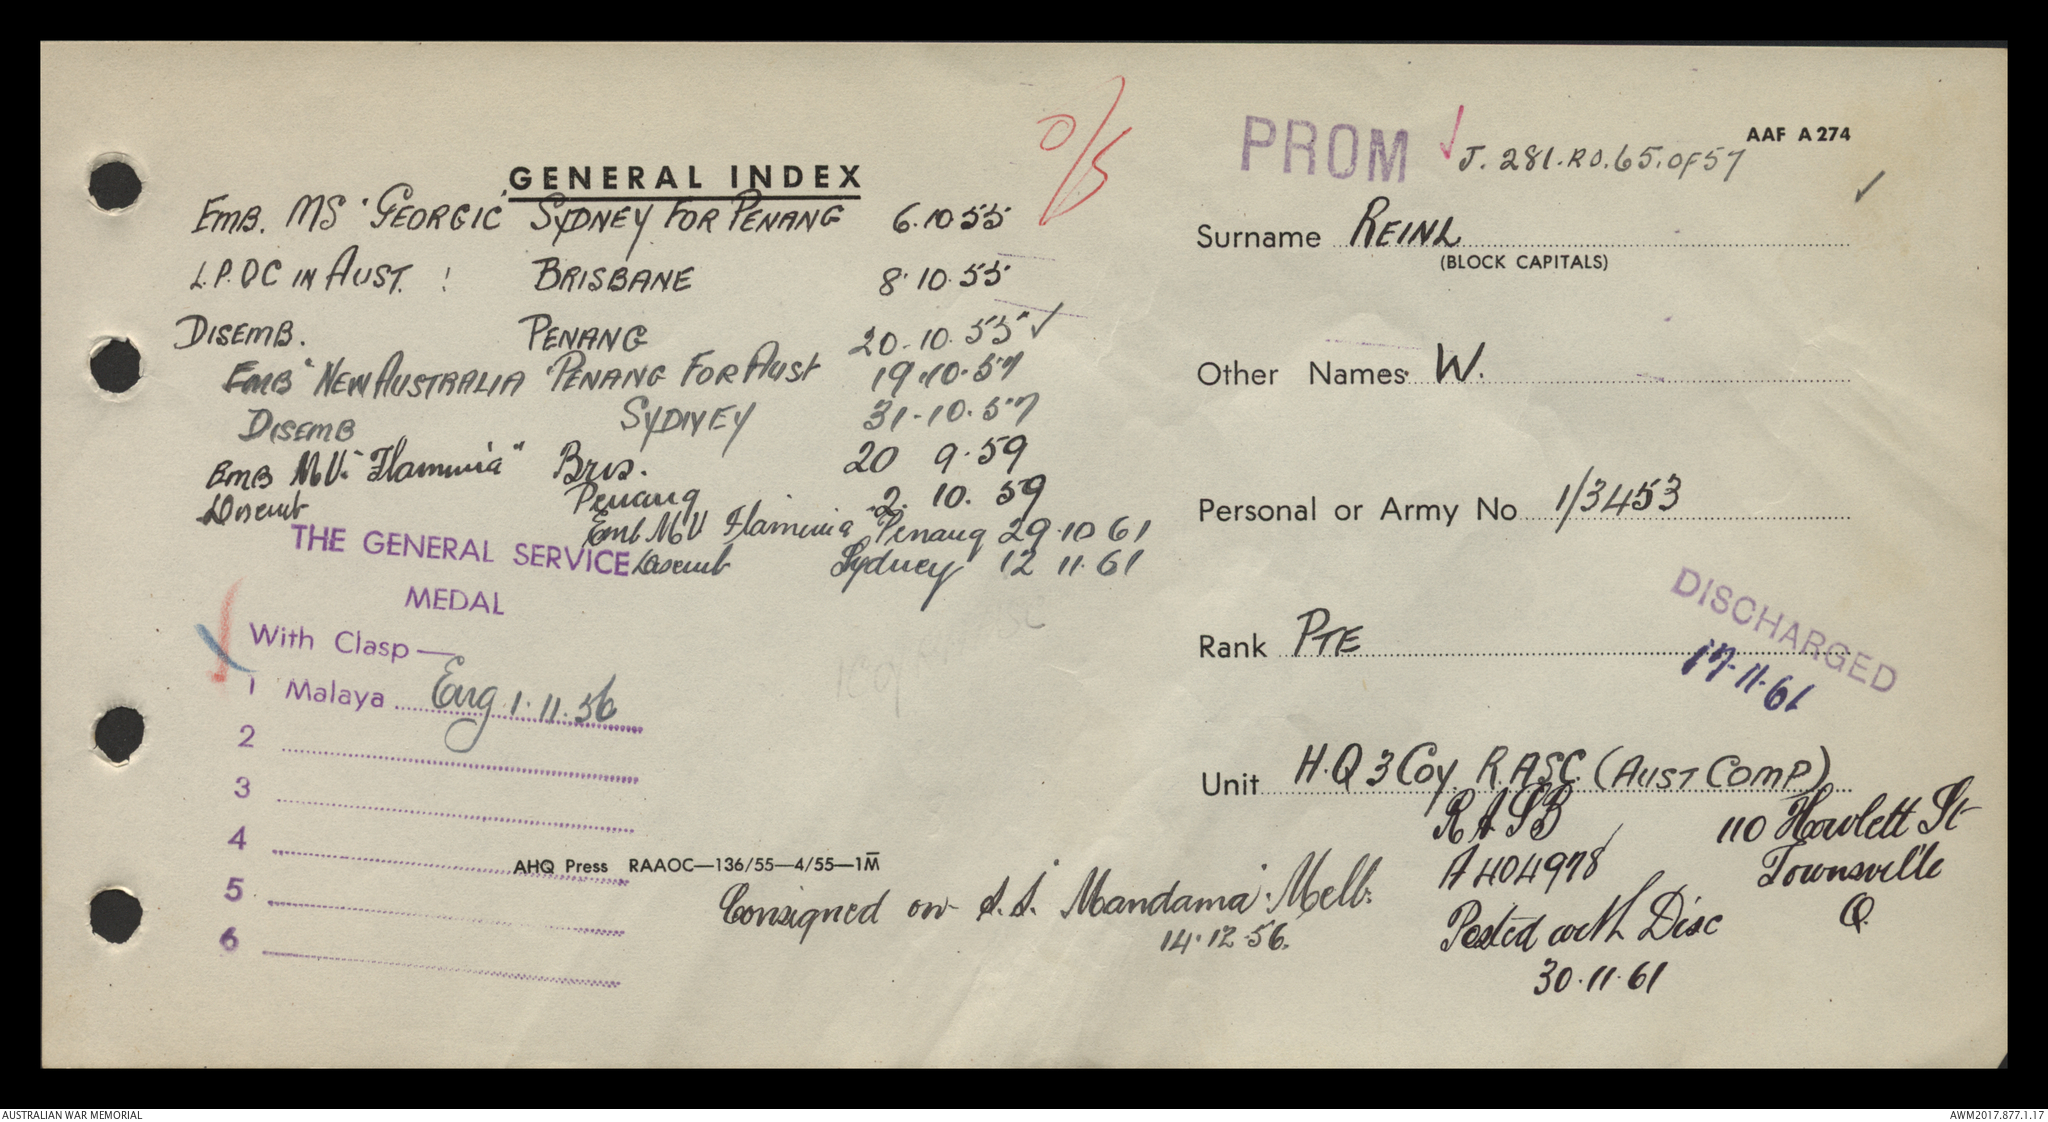 GENERAL INDEX
EMB. MS "GEORGIC" SYDNEY FOR PENANG 6.10.55
L.P.O C IN AUST. : BRISBANE 8.10.55
DISEMB. PENANG 20.10.55 ✓
EMB "NEW AUSTRALIA" PENANG FOR AUST 19.10.57
DISEMB SYDNEY 31.10.57
EMB M.V. "Flaminia" Bris. 20 9.59
Disemb Penang 2. 10. 59
Emb MV Flaminia Penang 29.10 61
Disemb Sydney 12 11.61
THE GENERAL SERVICE
MEDAL
With Clasp—
1 Malaya Eng 1.11.56
2
3
4
5
6
AHQ Press RAAOC—136/55—4/55—1M
Consigned on S.S. Mandama Melb.
14.12.56.
O/S
PROM ✓ J.281.RO.65.OF57
AAF A274
✓
Surname REINL
(BLOCK CAPITALS)
Other Names W.
Personal or Army No 1/3453
Rank PTE
DISCHARGED
17.11.61
Unit H.Q 3 Coy R.ASC. (AUST COMP)
RASB
A404978
Posted with Disc
30.11.61
110 Howlett St
Townsville
Q.
AUSTRALIAN WAR MEMORIAL
AWM2017.877.1.17